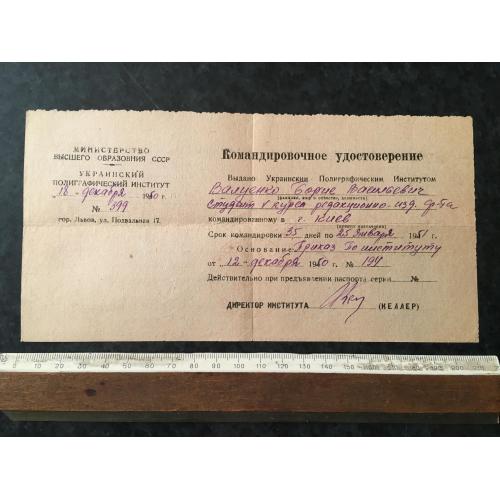 МИНИСТЕРСТВО
ВЫСШЕГО ОБРАЗОВНИЯ СССР
УКРАИНСКИЙ
ПОЛИГРАФИЧЕСКИЙ ИНСТИТУТ
18 - декабря 1950 г.
№ 399
гор. Львов, ул. Подвальная 17.
Командировочное удостоверение
Выдано Украинским Полиграфическим Институтом
Борис Васильевич
(фамилия, имя и отчество, должность)
студент V курса редакционно-изд. ф-та
командированному в г. Киев
(пункт назначения)
Срок командировки 35 дней по 25 Января 1951 г.
Основание: Приказ по институту
от 12 - декабря 1950 г. № 194
Действительно при предъявлении паспорта серии №
ДИРЕКТОР ИНСТИТУТА (КЕЛЛЕР)
0 10 20 30 40 50 60 70 80 90 100 110 120 130 140 150 160 170 180 190 200